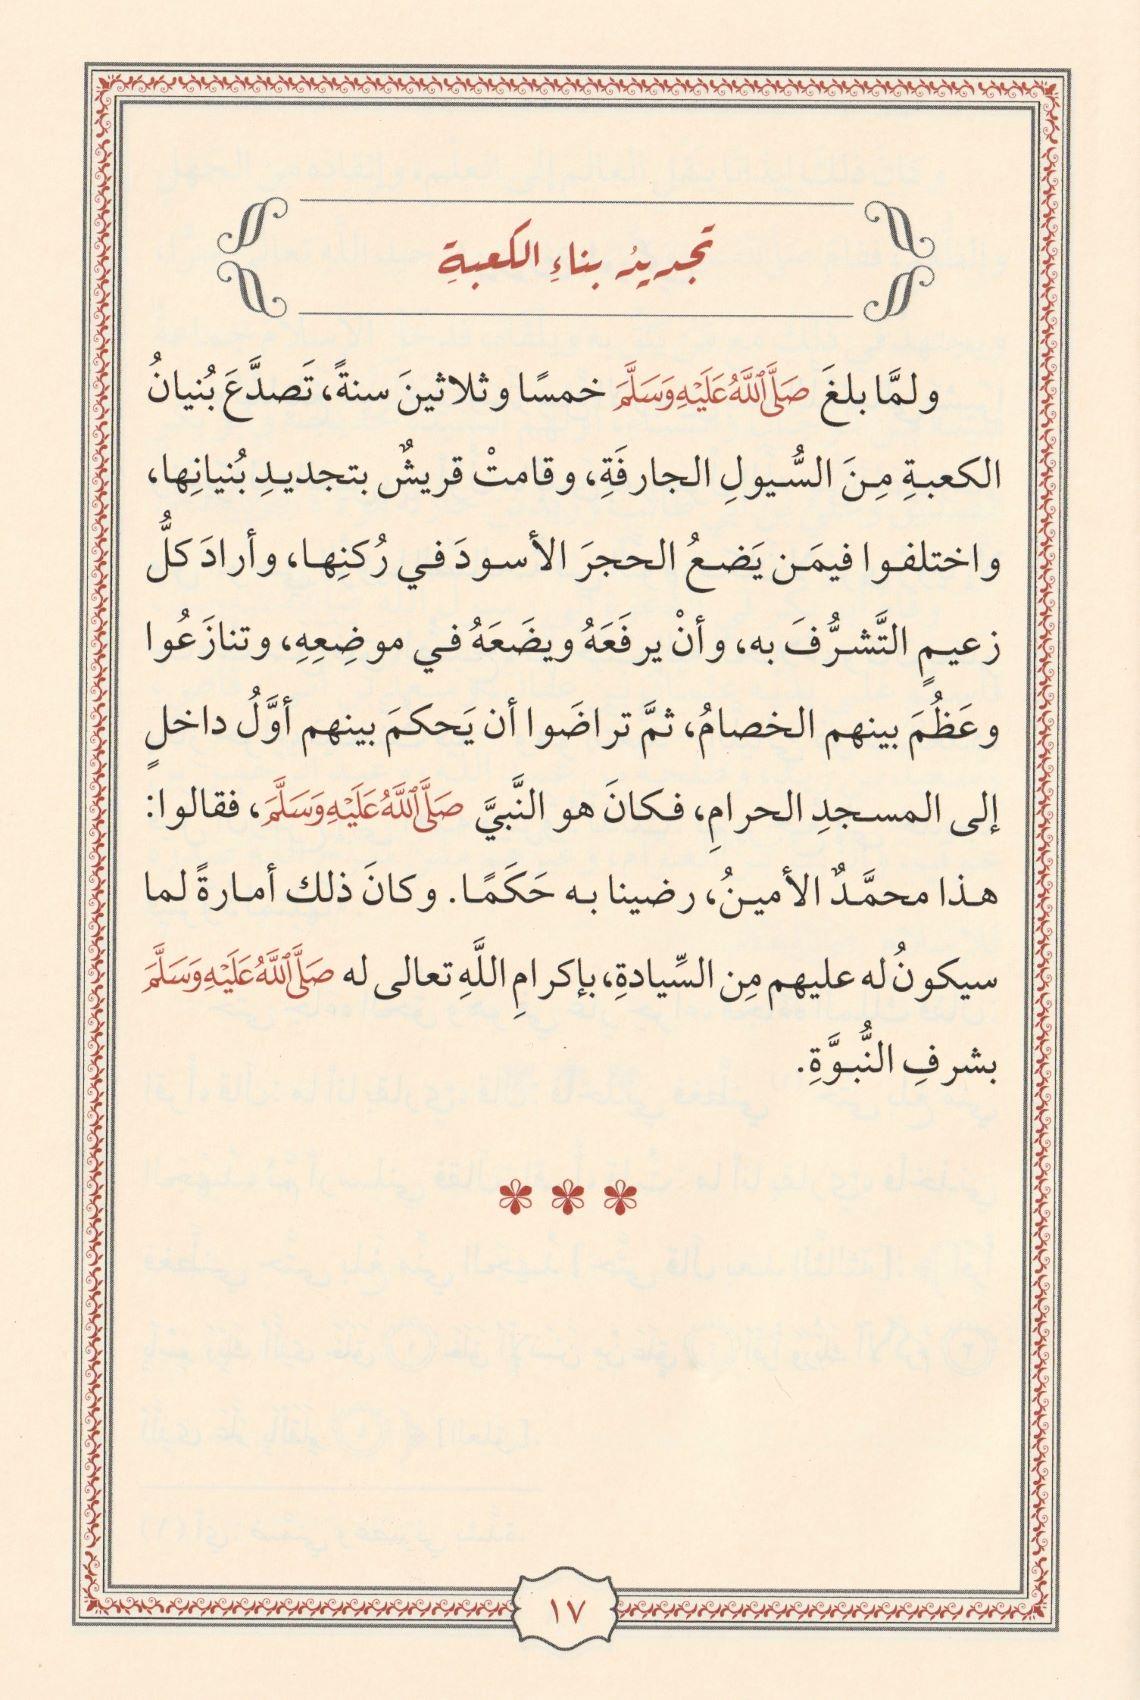 تجديدُ بناءِ الكعبةِ
ولمَّا بلغَ صَلَّى اللَّهُ عَلَيْهِ وَسَلَّمَ خمسًا وثلاثينَ سنةً، تَصدَّعَ بُنيانُ
الكعبةِ مِنَ السُّيولِ الجارفَةِ، وقامتْ قريشٌ بتجديدِ بُنيانِها،
واختلفوا فيمَن يَضعُ الحجرَ الأسودَ في رُكنِها، وأرادَ كلُّ
زعيمٍ التَّشرُّفَ به، وأنْ يرفَعَهُ ويضَعَهُ في موضِعِهِ، وتنازَعُوا
وعَظُمَ بينهم الخصامُ، ثمَّ تراضَوا أن يَحكمَ بينهم أوَّلُ داخلٍ
إلى المسجدِ الحرامِ، فكانَ هو النَّبيَّ صَلَّى اللَّهُ عَلَيْهِ وَسَلَّمَ، فقالوا:
هذا محمَّدٌ الأمينُ، رضينا به حَكَمًا. وكانَ ذلك أمارةً لما
سيكونُ له عليهم مِن السِّيادةِ، بإكرامِ اللَّهِ تعالى له صَلَّى اللَّهُ عَلَيْهِ وَسَلَّمَ
بشرفِ النُّبوَّةِ.
١٧